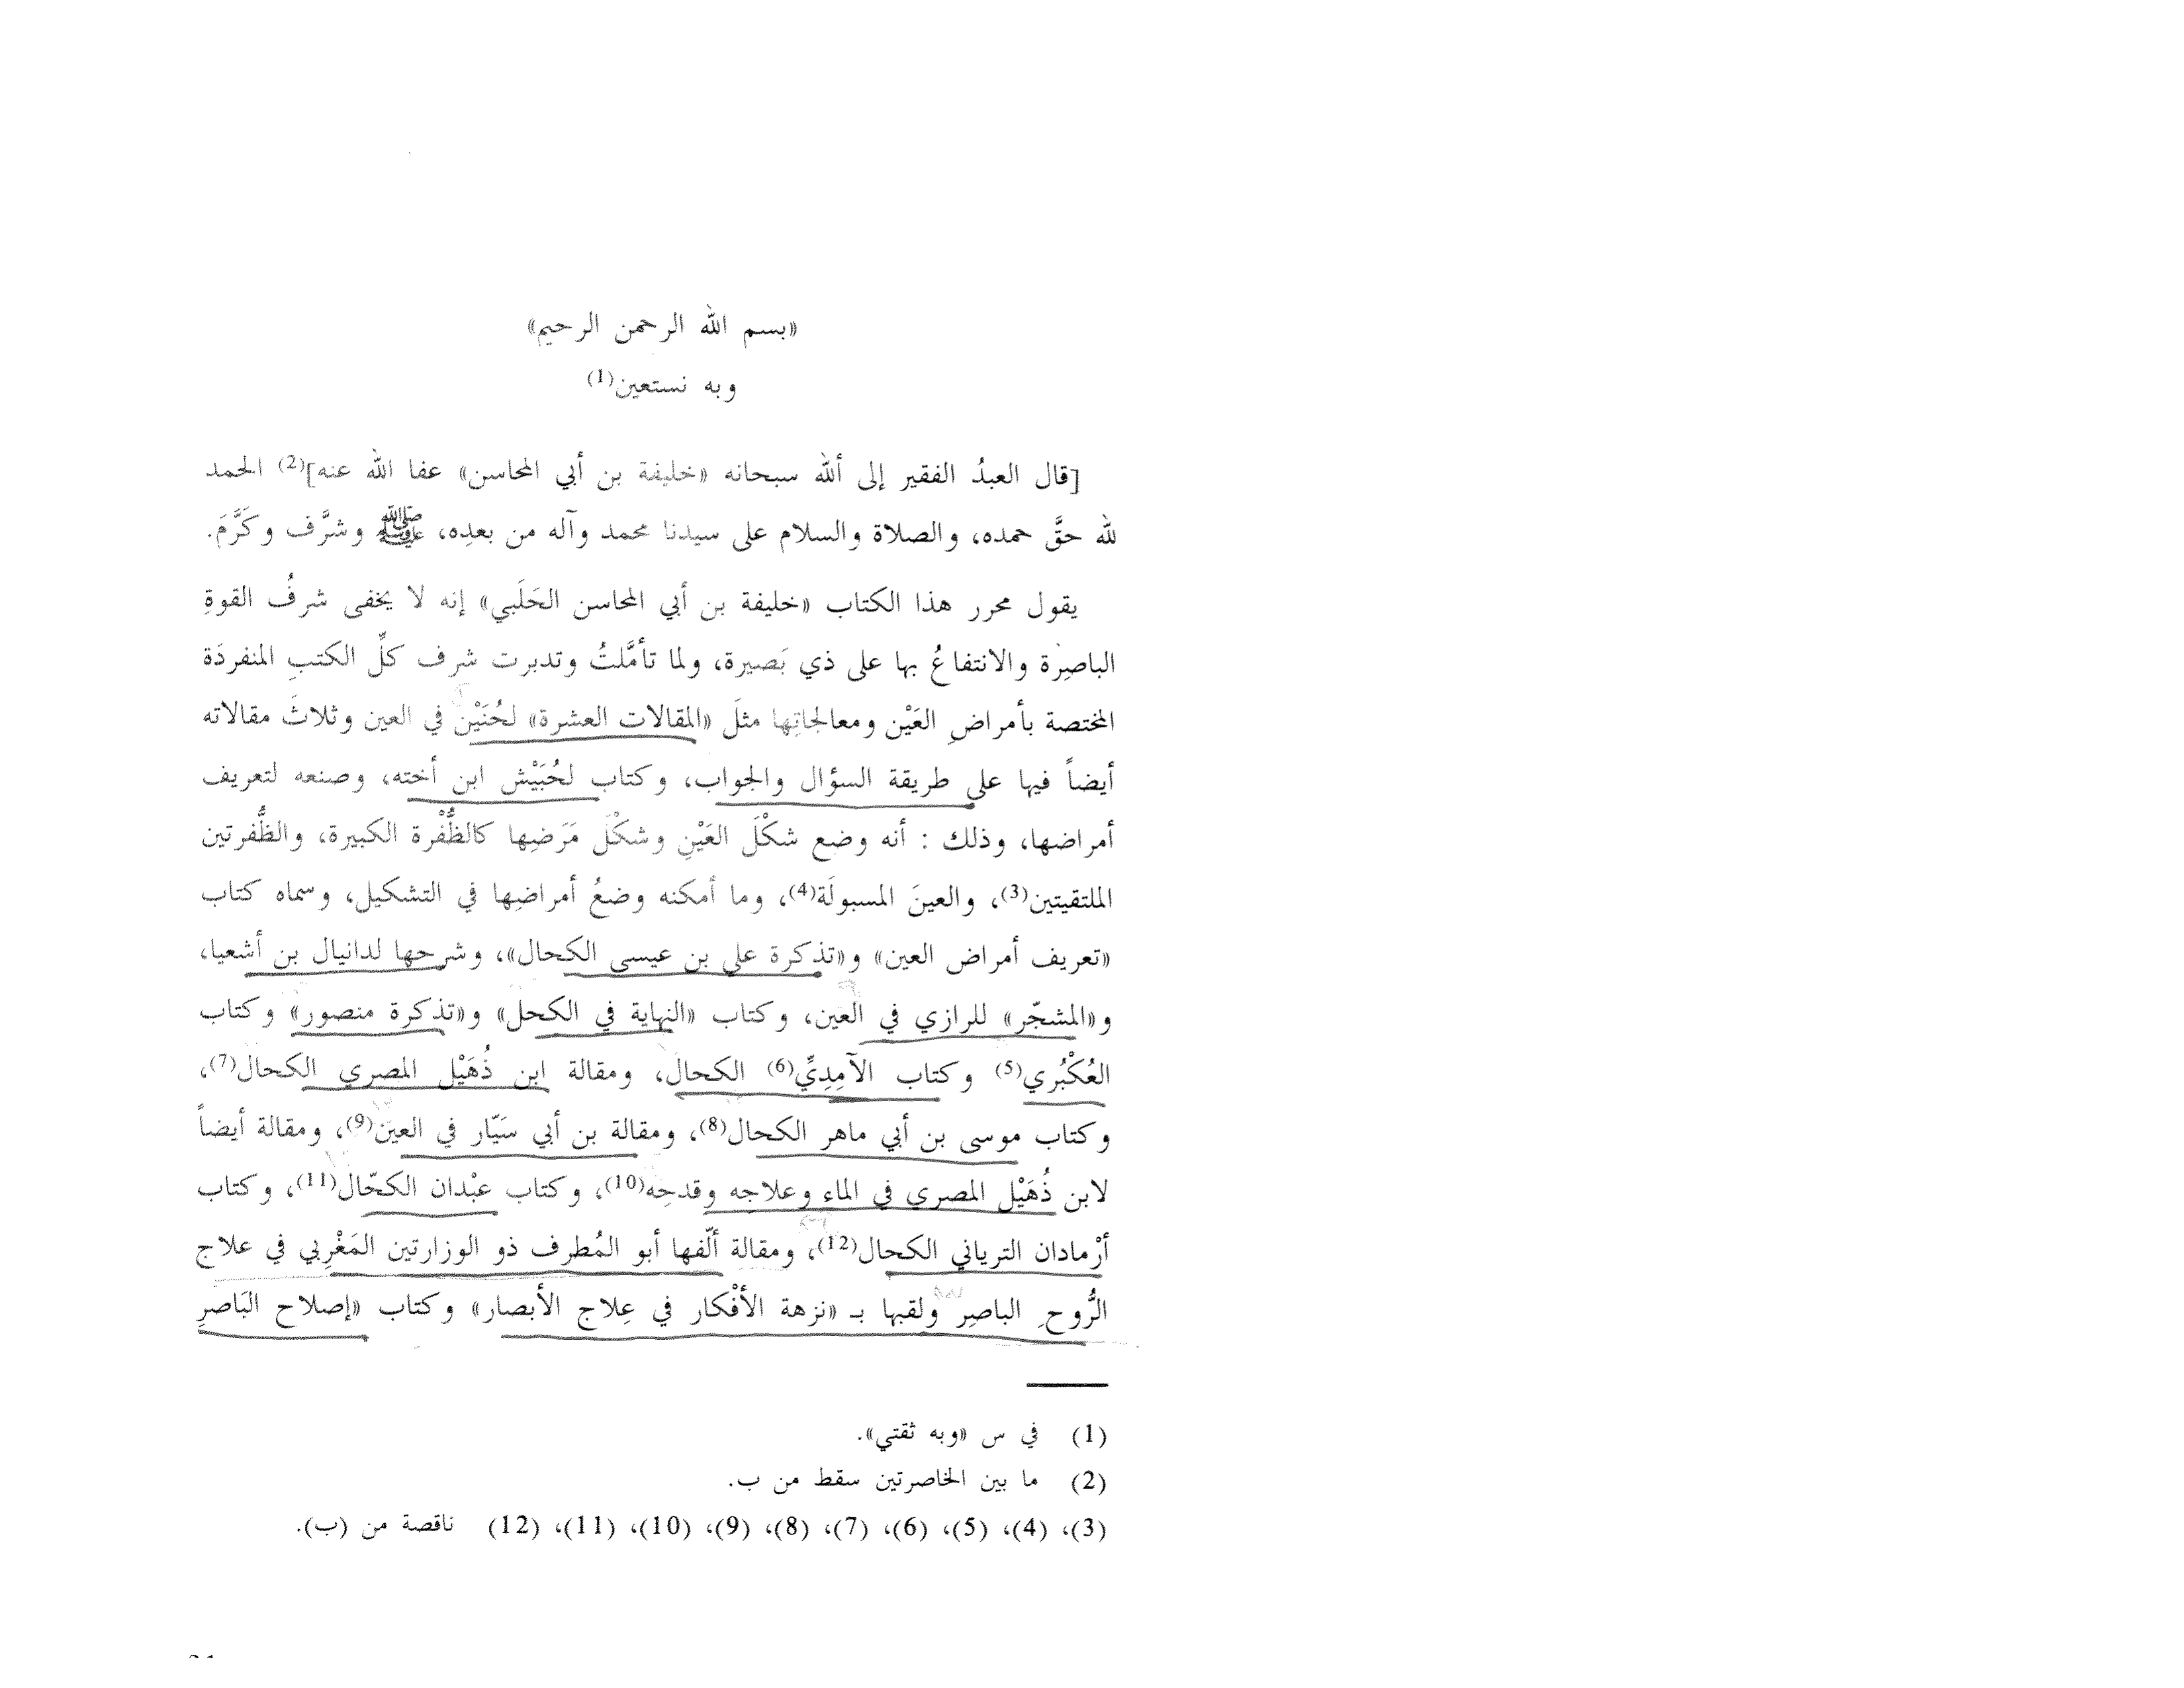 «بسم الله الرحمن الرحيم»
وبه نستعين(1)
[قال العبدُ الفقير إلى ألله سبحانه «خليفة بن أبي المحاسن» عفا الله عنه](2) الحمد
لله حقَّ حمده، والصلاة والسلام على سيدنا محمد وآله من بعدِه، ﷺ وشرَّف وكَرَّمَ.
يقول محرر هذا الكتاب «خليفة بن أبي المحاسن الحَلَبي» إنه لا يخفى شرفُ القوةِ
الباصِرة والانتفاعُ بها على ذي بَصيرة، ولما تأمَّلتُ وتدبرت شرف كلِّ الكتبِ المنفردَة
المختصة بأمراضِ العَيْن ومعالجاتِها مثلَ «المقالات العشرة» لحُنَيْن في العين وثلاثَ مقالاته
أيضاً فيها على طريقة السؤال والجواب، وكتاب لحُبَيْش ابن أخته، وصنعه لتعريف
أمراضها، وذلك : أنه وضع شكْلَ العَيْنِ وشكْلَ مَرَضِها كالظُّفْرة الكبيرة، والظُّفرتين
الملتقيتين(3)، والعينَ المسبولَة(4)، وما أمكنه وضعُ أمراضِها في التشكيل، وسماه كتاب
«تعريف أمراض العين» و«تذكرة علي بن عيسى الكحال»، وشرحها لدانيال بن أشعيا،
و«المشجّر» للرازي في العين، وكتاب «النهاية في الكحل» و«تذكرة منصور» وكتاب
العُكْبُري(5) وكتاب الآمِدِيِّ(6) الكحال، ومقالة ابن ذُهَيْل المصري الكحال(7)،
وكتاب موسى بن أبي ماهر الكحال(8)، ومقالة بن أبي سَيّار في العين(9)، ومقالة أيضاً
لابن ذُهَيْل المصري في الماء وعلاجِه وقدحِه(10)، وكتاب عبْدان الكحّال(11)، وكتاب
أرْمادان الترياني الكحال(12)، ومقالة ألّفها أبو المُطرف ذو الوزارتين المَغْرِبي في علاج
الرُّوحِ الباصِر ولقبها بـ «نزهة الأفْكار في عِلاج الأبصار» وكتاب «إصلاح البَاصرِ
(1) في س «وبه ثقتي».
(2) ما بين الخاصرتين سقط من ب.
(3)، (4)، (5)، (6)، (7)، (8)، (9)، (10)، (11)، (12) ناقصة من (ب).